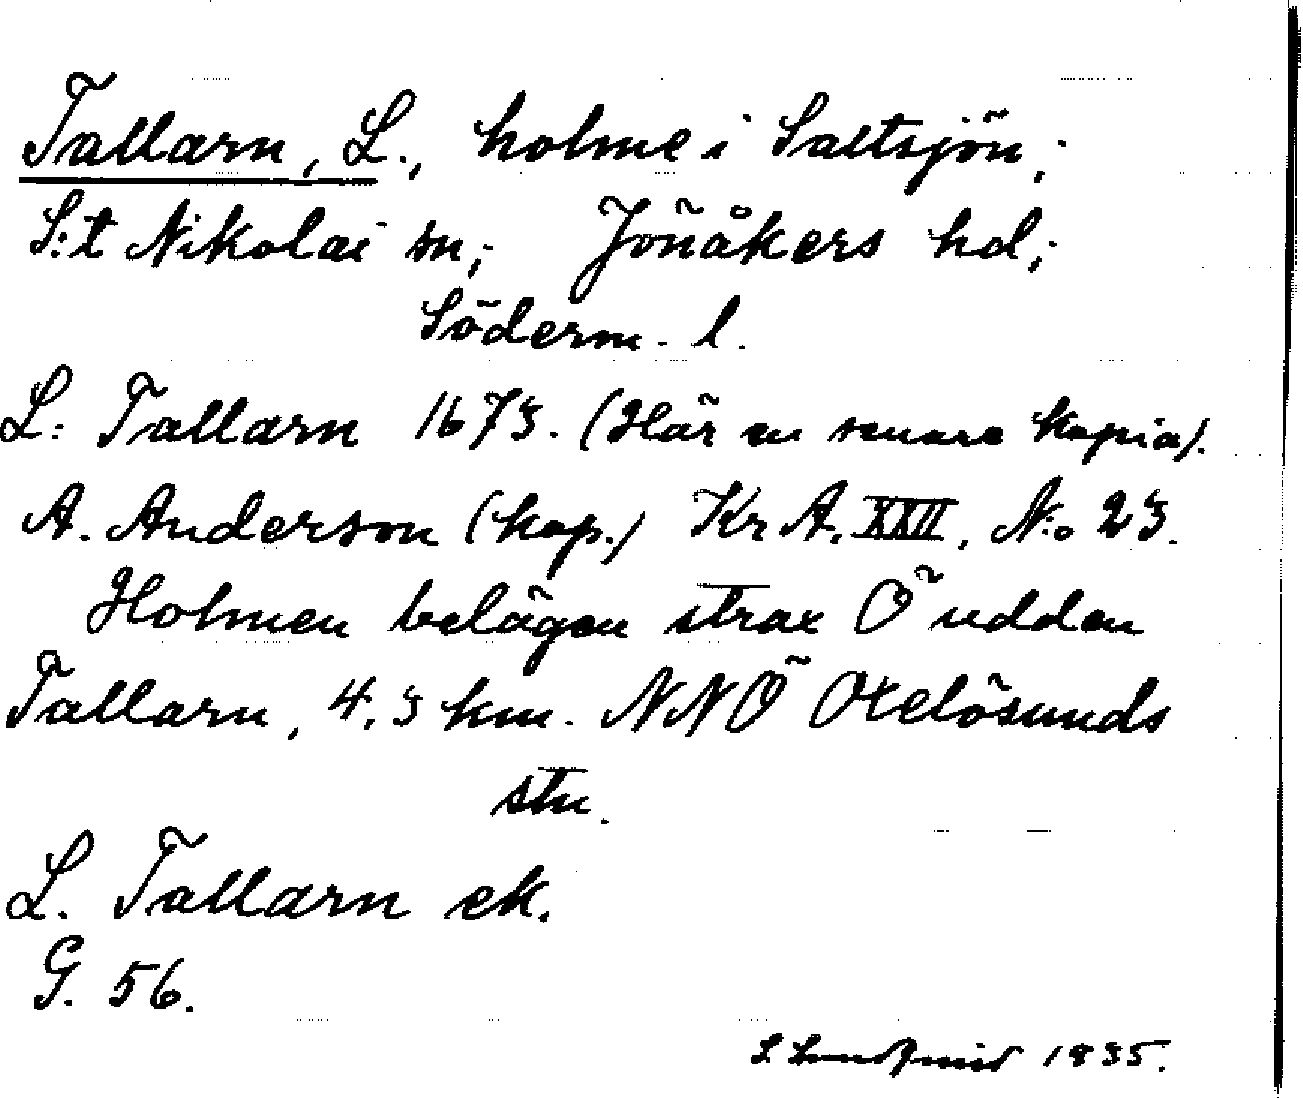 Tallarn, L., holme i Saltsjön;
S:t Nikolai sn; Jönåkers hd;
Söderm. l.
L: Tallarn 1673. (Här en senare kopia).
A. Anderson (kop.) Kr A. XXII, N:o 23.
Holmen belägen strax Ö udden
Tallarn, 4,3 km. NNÖ Oxelösunds
stn.
L. Tallarn ek.
G. 56.
S. Lundqvist 1935.